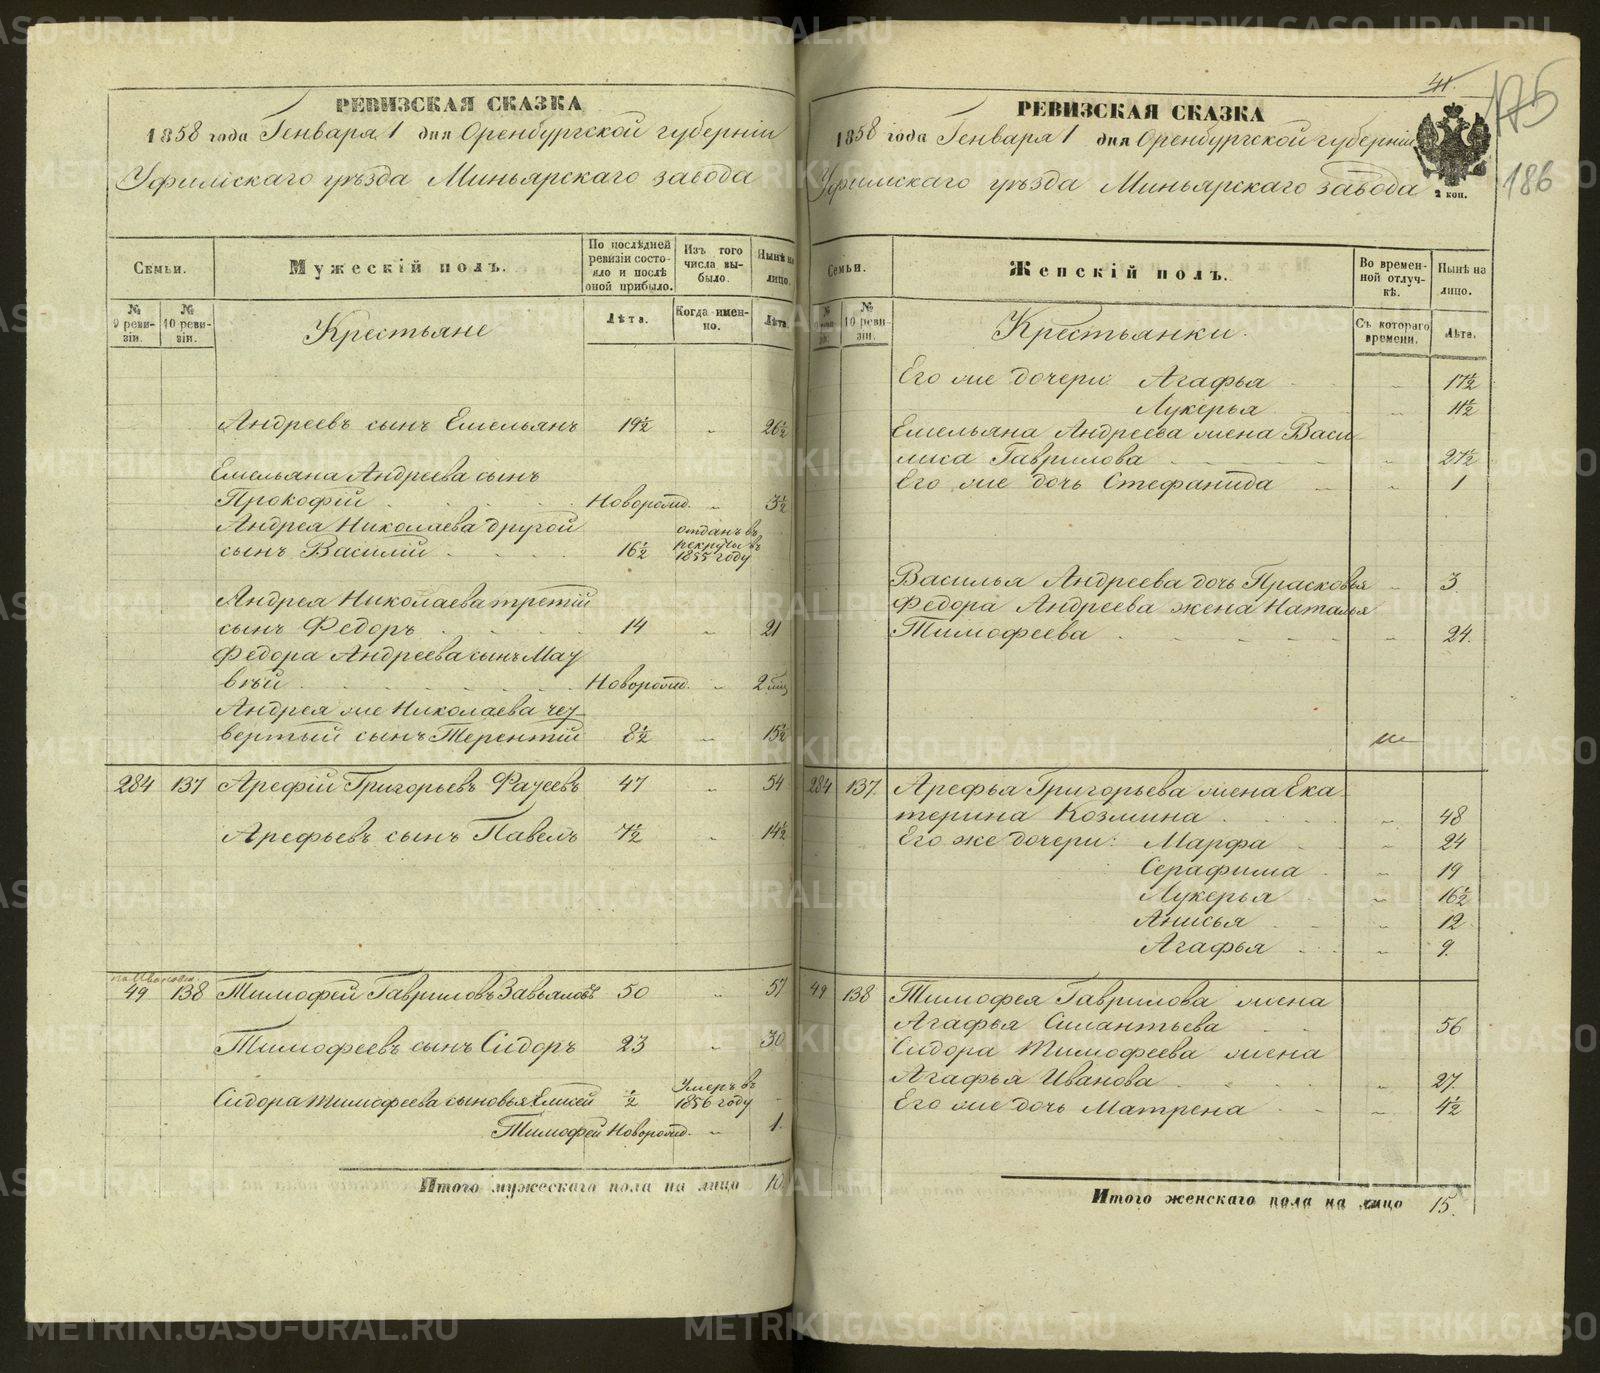 РЕВИЗСКАЯ СКАЗКА
1858 года Генваря 1 дня Оренбургской губерніи
Уфимскаго уѣзда Миньярскаго завода
Семьи.
Мужескій полъ.
По послѣдней ревизіи состояло и послѣ оной прибыло.
Изъ того числа выбыло.
Нынѣ на лицо.
№ 9 ревизіи.
№ 10 ревизіи.
Крестьяне
Лѣта.
Когда именно.
Лѣта.
Андреевъ сынъ Емельянъ 19½ „ 26½
Емельяна Андреева сынъ
Прокофій Новорожд. „ 3½
Андрея Николаева другой
сынъ Василій 16½ отданъ въ рекруты въ 1855 году
Андрея Николаева третій
сынъ Федоръ 14 „ 21
Федора Андреева сынъ Мат
вѣй Новорожд. „ 2 мѣс
Андрея же Николаева чет-
вертый сынъ Терентій 8½ „ 15½
284 137 Арефій Григорьевъ 47 „ 54
Арефьевъ сынъ Павелъ 7½ „ 14½
49 138 Тимофей Гавриловъ Завьяловъ 50 „ 57
Тимофеевъ сынъ Сидоръ 23 „ 30
Сидора Тимофеева сыновья Елисей ½ Умеръ въ 1856 году
Тимофей Новорожд. „ 1.
Итого мужескаго пола на лицо 10.
41.
175
186
РЕВИЗСКАЯ СКАЗКА
1858 года Генваря 1 дня Оренбургской губерніи
Уфимскаго уѣзда Миньярскаго завода
2 коп.
Семьи.
Женскій полъ.
Во временной отлучкѣ.
Нынѣ на лицо.
№ 10 ревизіи.
Крестьянки.
Съ котораго времени.
Лѣта.
Его же дочери: Агафья „ 17½
Лукерья „ 11½
Емельяна Андреева жена Васи-
лиса Гаврилова „ 27½
Его же дочь Стефанида „ 1
Василья Андреева дочь Прасковья „ 3.
Федора Андреева жена Наталья
Тимофеева „ 24.
284 137. Арефья Григорьева жена Ека-
терина Козмина „ 48
Его же дочери: Марфа „ 24
Серафима „ 19
Лукерья „ 16½
Анисья „ 12
Агафья „ 9.
49 138 Тимофея Гаврилова жена
Агафья 56
Сидора Тимофеева жена
Агафья Иванова „ 27.
Его же дочь Матрена „ 4½
Итого женскаго пола на лицо 15.
METRIKI.GASO-URAL.RU